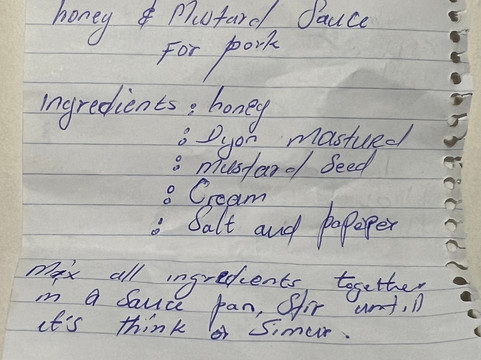 honey & Mustard Sauce
For pork
Ingredients : honey
: Dyon masturd
: mustard Seed
: Cream
: Salt and papeper
Mix all ingredients together
in a Sauce pan, Stir until
it's think or Simeur.